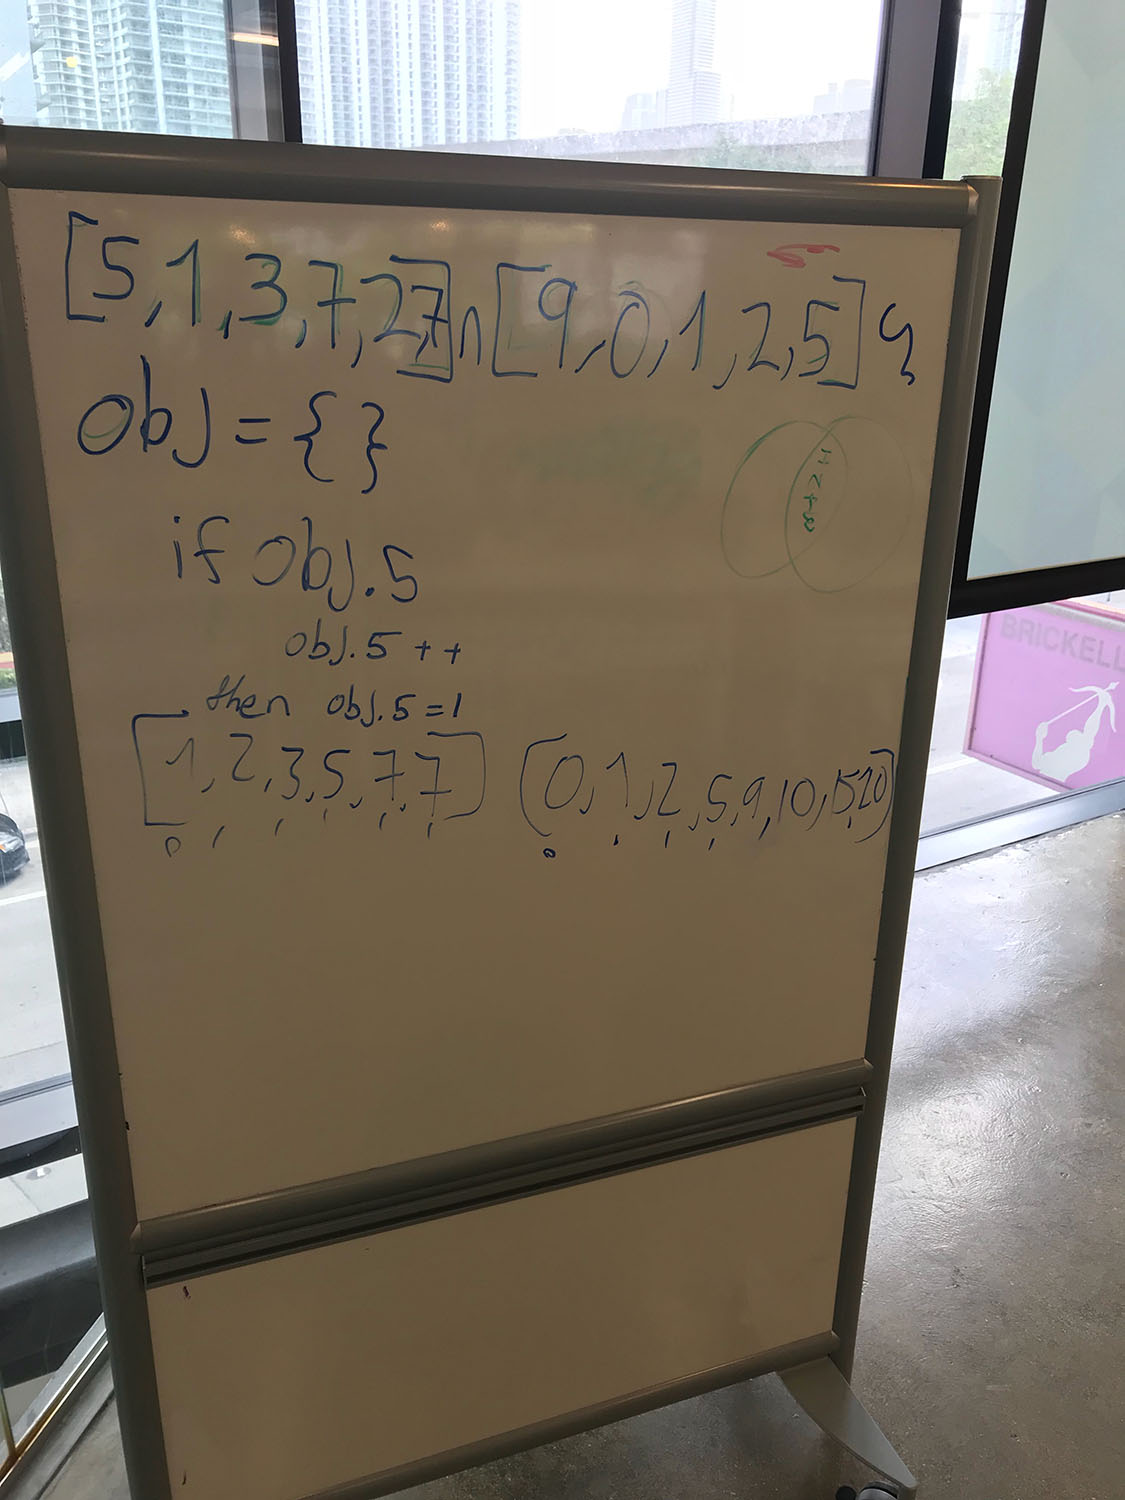 [5,1,3,7,2,7] ∩ [9,0,1,2,5]
obj = { }
if obj.5
obj.5 ++
then obj.5=1
[1,2,3,5,7,7] [0,1,2,5,9,10,15,20]
BRICKELL